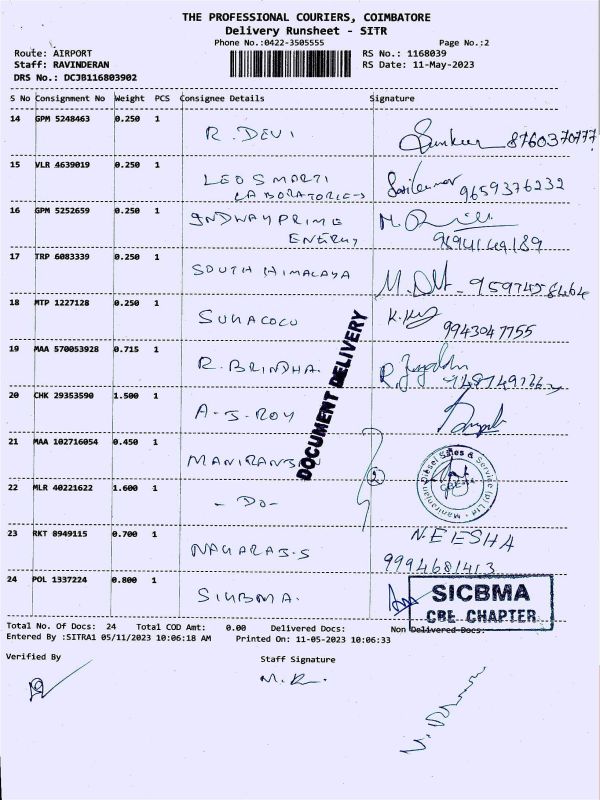 THE PROFESSIONAL COURIERS, COIMBATORE
Delivery Runsheet - SITR
Phone No.:0422-3505555 Page No.:2
Route: AIRPORT RS No.: 1168039
Staff: RAVINDERAN RS Date: 11-May-2023
DRS No.: DCJB116803902
S No Consignment No Weight PCS Consignee Details Signature
14 GPM 5248463 0.250 1
R. DEVI 8760370777
15 VLR 4639019 0.250 1
LEO SMARTI
LABORATORIES 9659376232
16 GPM 5252659 0.250 1
INDWAY PRIME
ENERGY
17 TRP 6083339 0.250 1
SOUTH HIMALAYA
18 MTP 1227128 0.250 1
9943047755
19 MAA 570053928 0.715 1
R. BRINDHA.
20 CHK 29353590 1.500 1
A-S-ROY
DOCUMENT DELIVERY
21 MAA 102716054 0.450 1
22 MLR 40221622 1.600 1
- DO -
2
Diesel Sales & Service (p) Ltd
CBE
23 RKT 8949115 0.700 1
NAGARAJ-S
NEESHA
9994681413
24 POL 1337224 0.800 1
SICBMA
CBE CHAPTER
Total No. Of Docs: 24 Total COD Amt: 0.00 Delivered Docs: Non Delivered Docs:
Entered By :SITRA1 05/11/2023 10:06:18 AM Printed On: 11-05-2023 10:06:33
Verified By Staff Signature